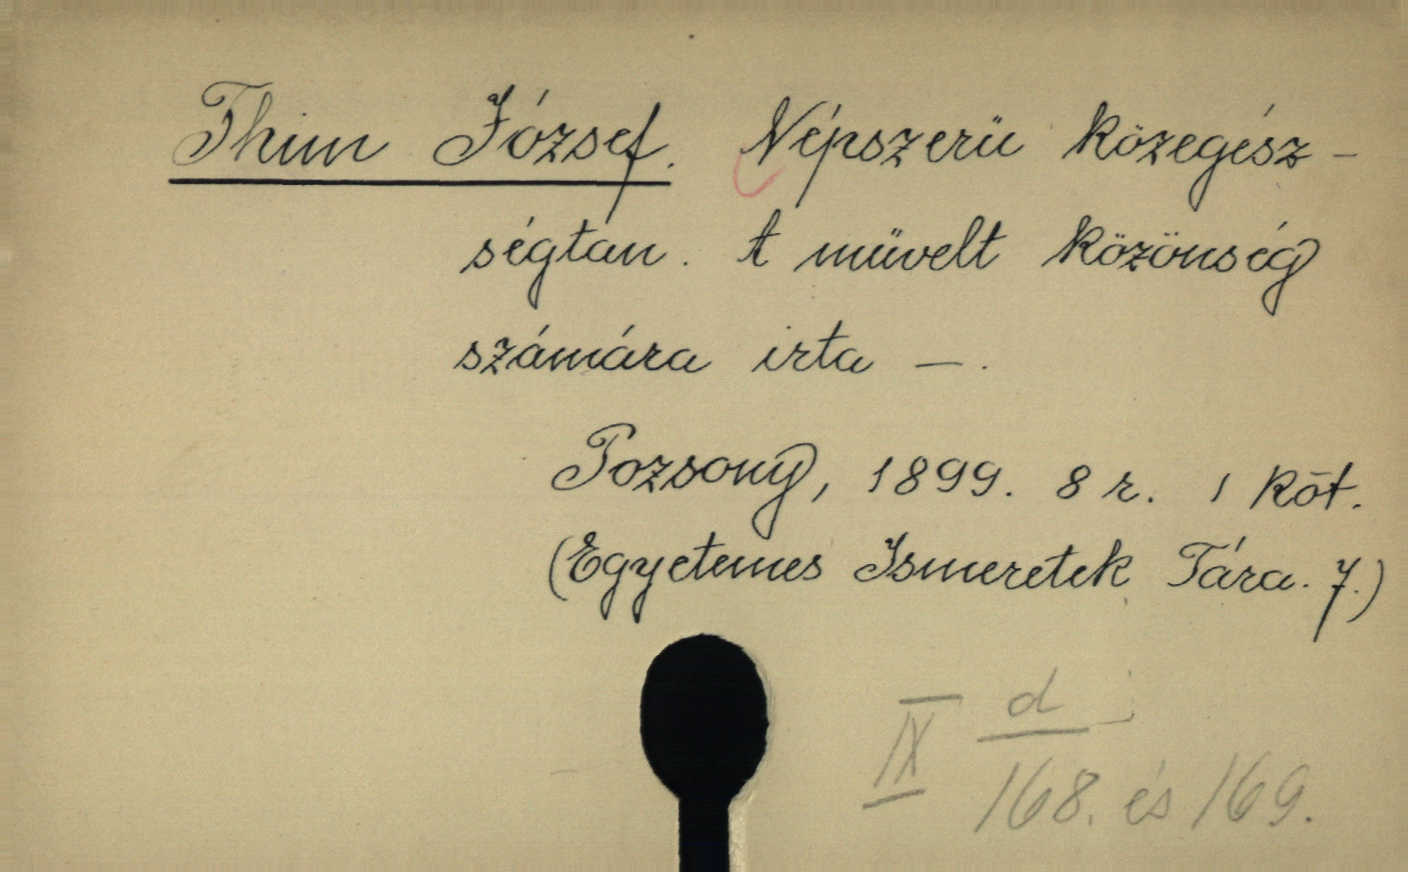 Thim József. Népszerü közegész-
ségtan. A müvelt közönség
számára irta —.
Pozsony, 1899. 8 r. 1 köt.
(Egyetemes Ismeretek Tára. 7.)
IX d
168. és 169.